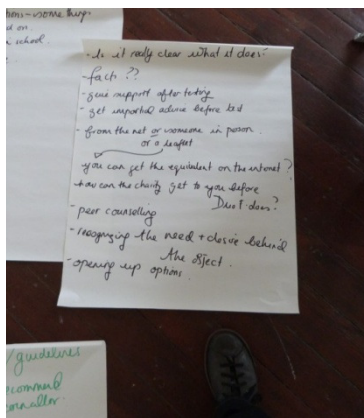 - some things
d on
school.
- Is it really clear what it does?
- fact ??
- give support after testing
- get impartial advice before bed
- from the net or someone in person.
or a leaflet
you can get the equivalent on the internet?
how can the charity get to you before
does?
- peer counselling
- recognizing the need + desire behind
the object.
- opening up options.
/guidelines
ecommend